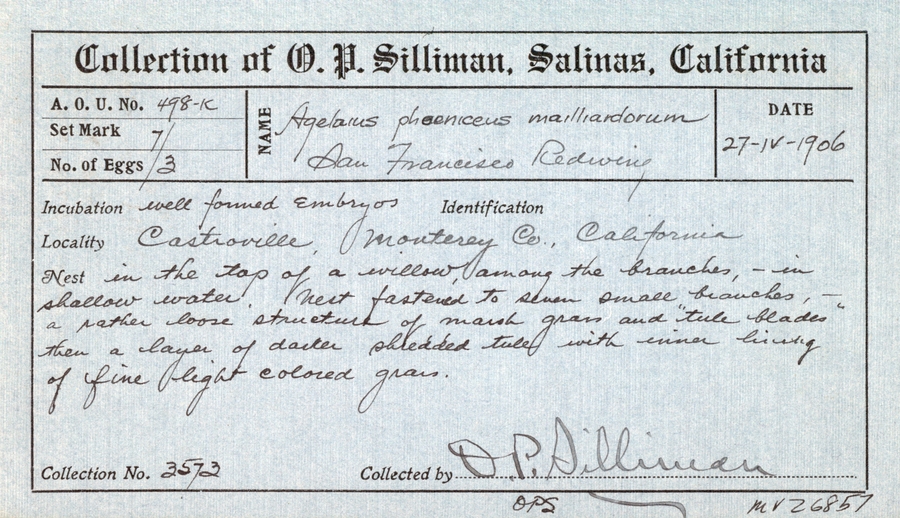 Collection of O. P. Silliman, Salinas, California
A. O. U. No. 498-K
Set Mark 7/
No. of Eggs /3
NAME
Agelaius phoeniceus mailliardorum
San Francisco Redwing
DATE
27-IV-1906
Incubation well formed Embryos Identification
Locality Castroville, Monterey Co., California
Nest in the top of a willow, among the branches, – in
shallow water. Nest fastened to seven small branches, –
a rather loose structure of marsh grass and "tule blades"
then a layer of darker shredded tule, with inner lining
of fine light colored grass.
Collection No. 3573
Collected by O.P. Silliman
OPS
MVZ 6857